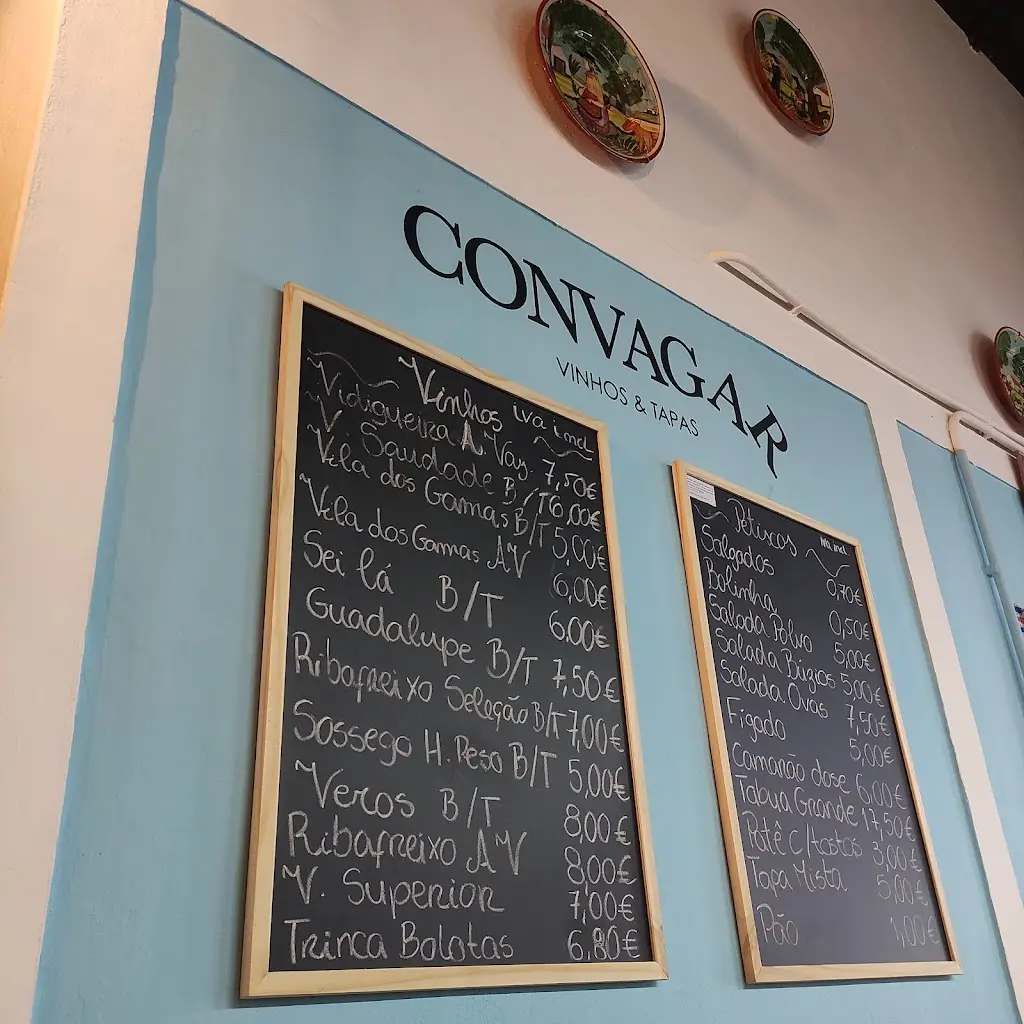 CONVAGAR
VINHOS & TAPAS
Vinhos iva incl
Vidigueira A. Vay. 7,50€
V Saudade B/T 6,00€
Vila dos Gamas B/T 5,00€
Vila dos Gamas AV 6,00€
Sei lá B/T 6.00€
Guadalupe B/T 7,50€
Ribafreixo Seleção B/T 7,00€
Sossego H. Peso B/T 5,00€
Veros B/T 8,00€
Ribafreixo AV 8,00€
V. Superior 7,00€
Trinca Bolotas 6,80€
Petiscos iva incl
Salgados 0,70€
Bolinha 0,50€
Salada Polvo 5,00€
Salada Búzios 5,00€
Salada Ovas 7,50€
Figado 5,00€
Camarão dose 6,00€
Tabua Grande 17,50€
Patê C/tostas 3,00€
Tapa Mista 5,00€
Pão 1,00€